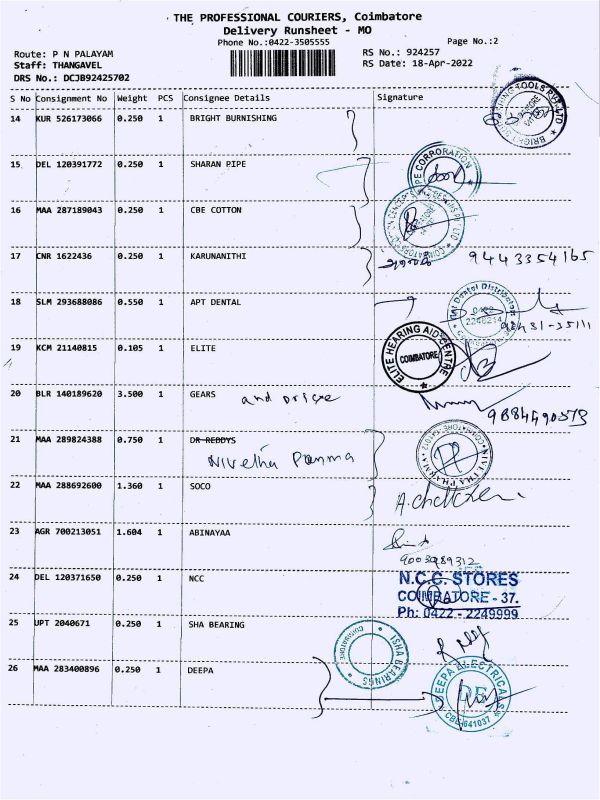 THE PROFESSIONAL COURIERS, Coimbatore
Delivery Runsheet - MO
Phone No.:0422-3505555 Page No.:2
Route: P N PALAYAM RS No.: 924257
Staff: THANGAVEL RS Date: 18-Apr-2022
DRS No.: DCJB92425702
S No Consignment No Weight PCS Consignee Details Signature
14 KUR 526173066 0.250 1 BRIGHT BURNISHING
15 DEL 120391772 0.250 1 SHARAN PIPE
16 MAA 287189043 0.250 1 CBE COTTON
17 CNR 1622436 0.250 1 KARUNANITHI 9443354165
18 SLM 293688086 0.550 1 APT DENTAL
Dental Distributors
19 KCM 21140815 0.105 1 ELITE
ELITE HEARING AID CENTRE
COIMBATORE
20 BLR 140189620 3.500 1 GEARS and
21 MAA 289824388 0.750 1 DR REDDYS
Nivetha
NIVETHA PHARMA
22 MAA 288692600 1.360 1 SOCO
23 AGR 700213051 1.604 1 ABINAYAA
9003989312
24 DEL 120371650 0.250 1 NCC
N.C.C. STORES
COIMBATORE - 37.
Ph: 0422 - 2249999
25 UPT 2040671 0.250 1 SHA BEARING
ISHA BEARINGS
COIMBATORE
26 MAA 283400896 0.250 1 DEEPA
DEEPA ELECTRICALS
DE
CBE-641037